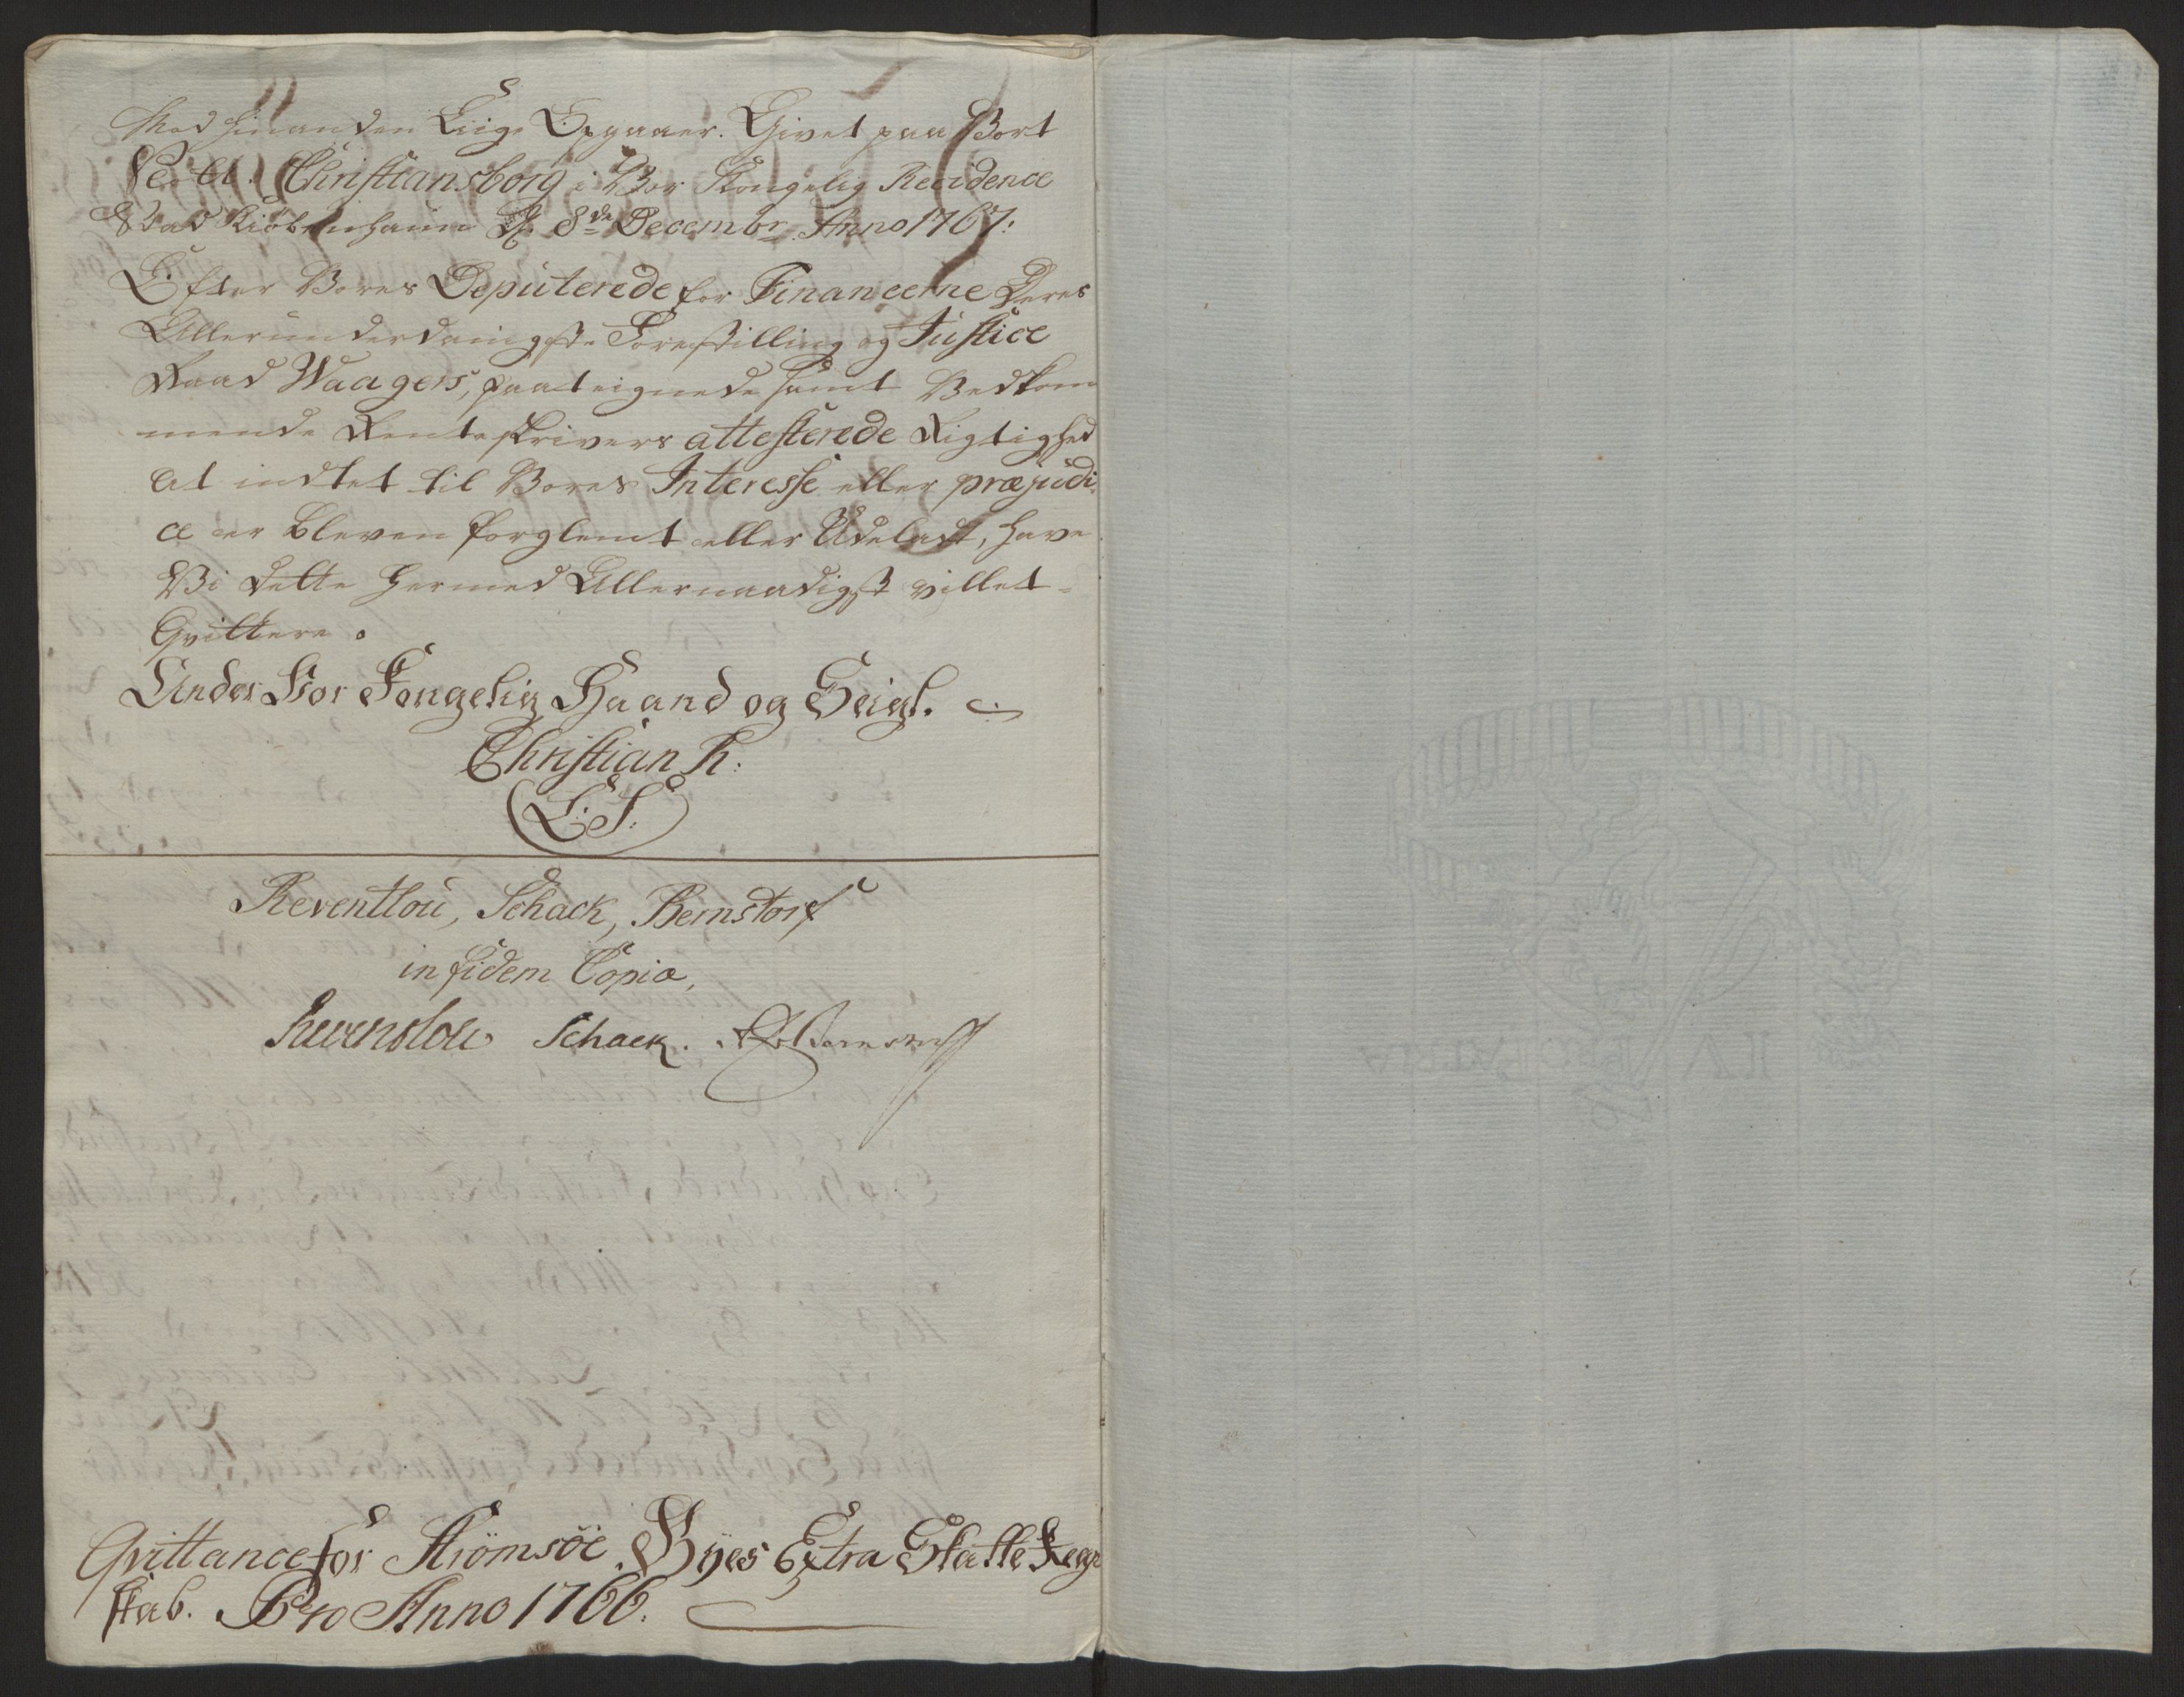 Med hinanden Liige Opgaaer. Givet paa Vort
Christiansborg i Vor Kongelig Residence
Stad Kiöbenhavn D. 8de Decembr. Anno 1767:
Efter Vores Deputerede for Financerne Deres
Allerunderdanigste Forestilling og Justice
Raad Waagers, paategnede samt Vedkom
mende Renteskrivers attesterede Rigtighed
at indtet til Vores Interesse eller præjudi
ce er bleven forglemt eller Udeladt, have
Vi dette hermed Allernaadigst villet
Qvittere.
Under Vor Kongelig Haand og Seigl.
Christian R:
(L:S:)
Reventlou, Schack, Bernstorf
in fidem Copiæ,
Reventlou Schack.
Qvittance for Strömsöe Byes Extra Skatte Regn
skab. Pro Anno 1766.